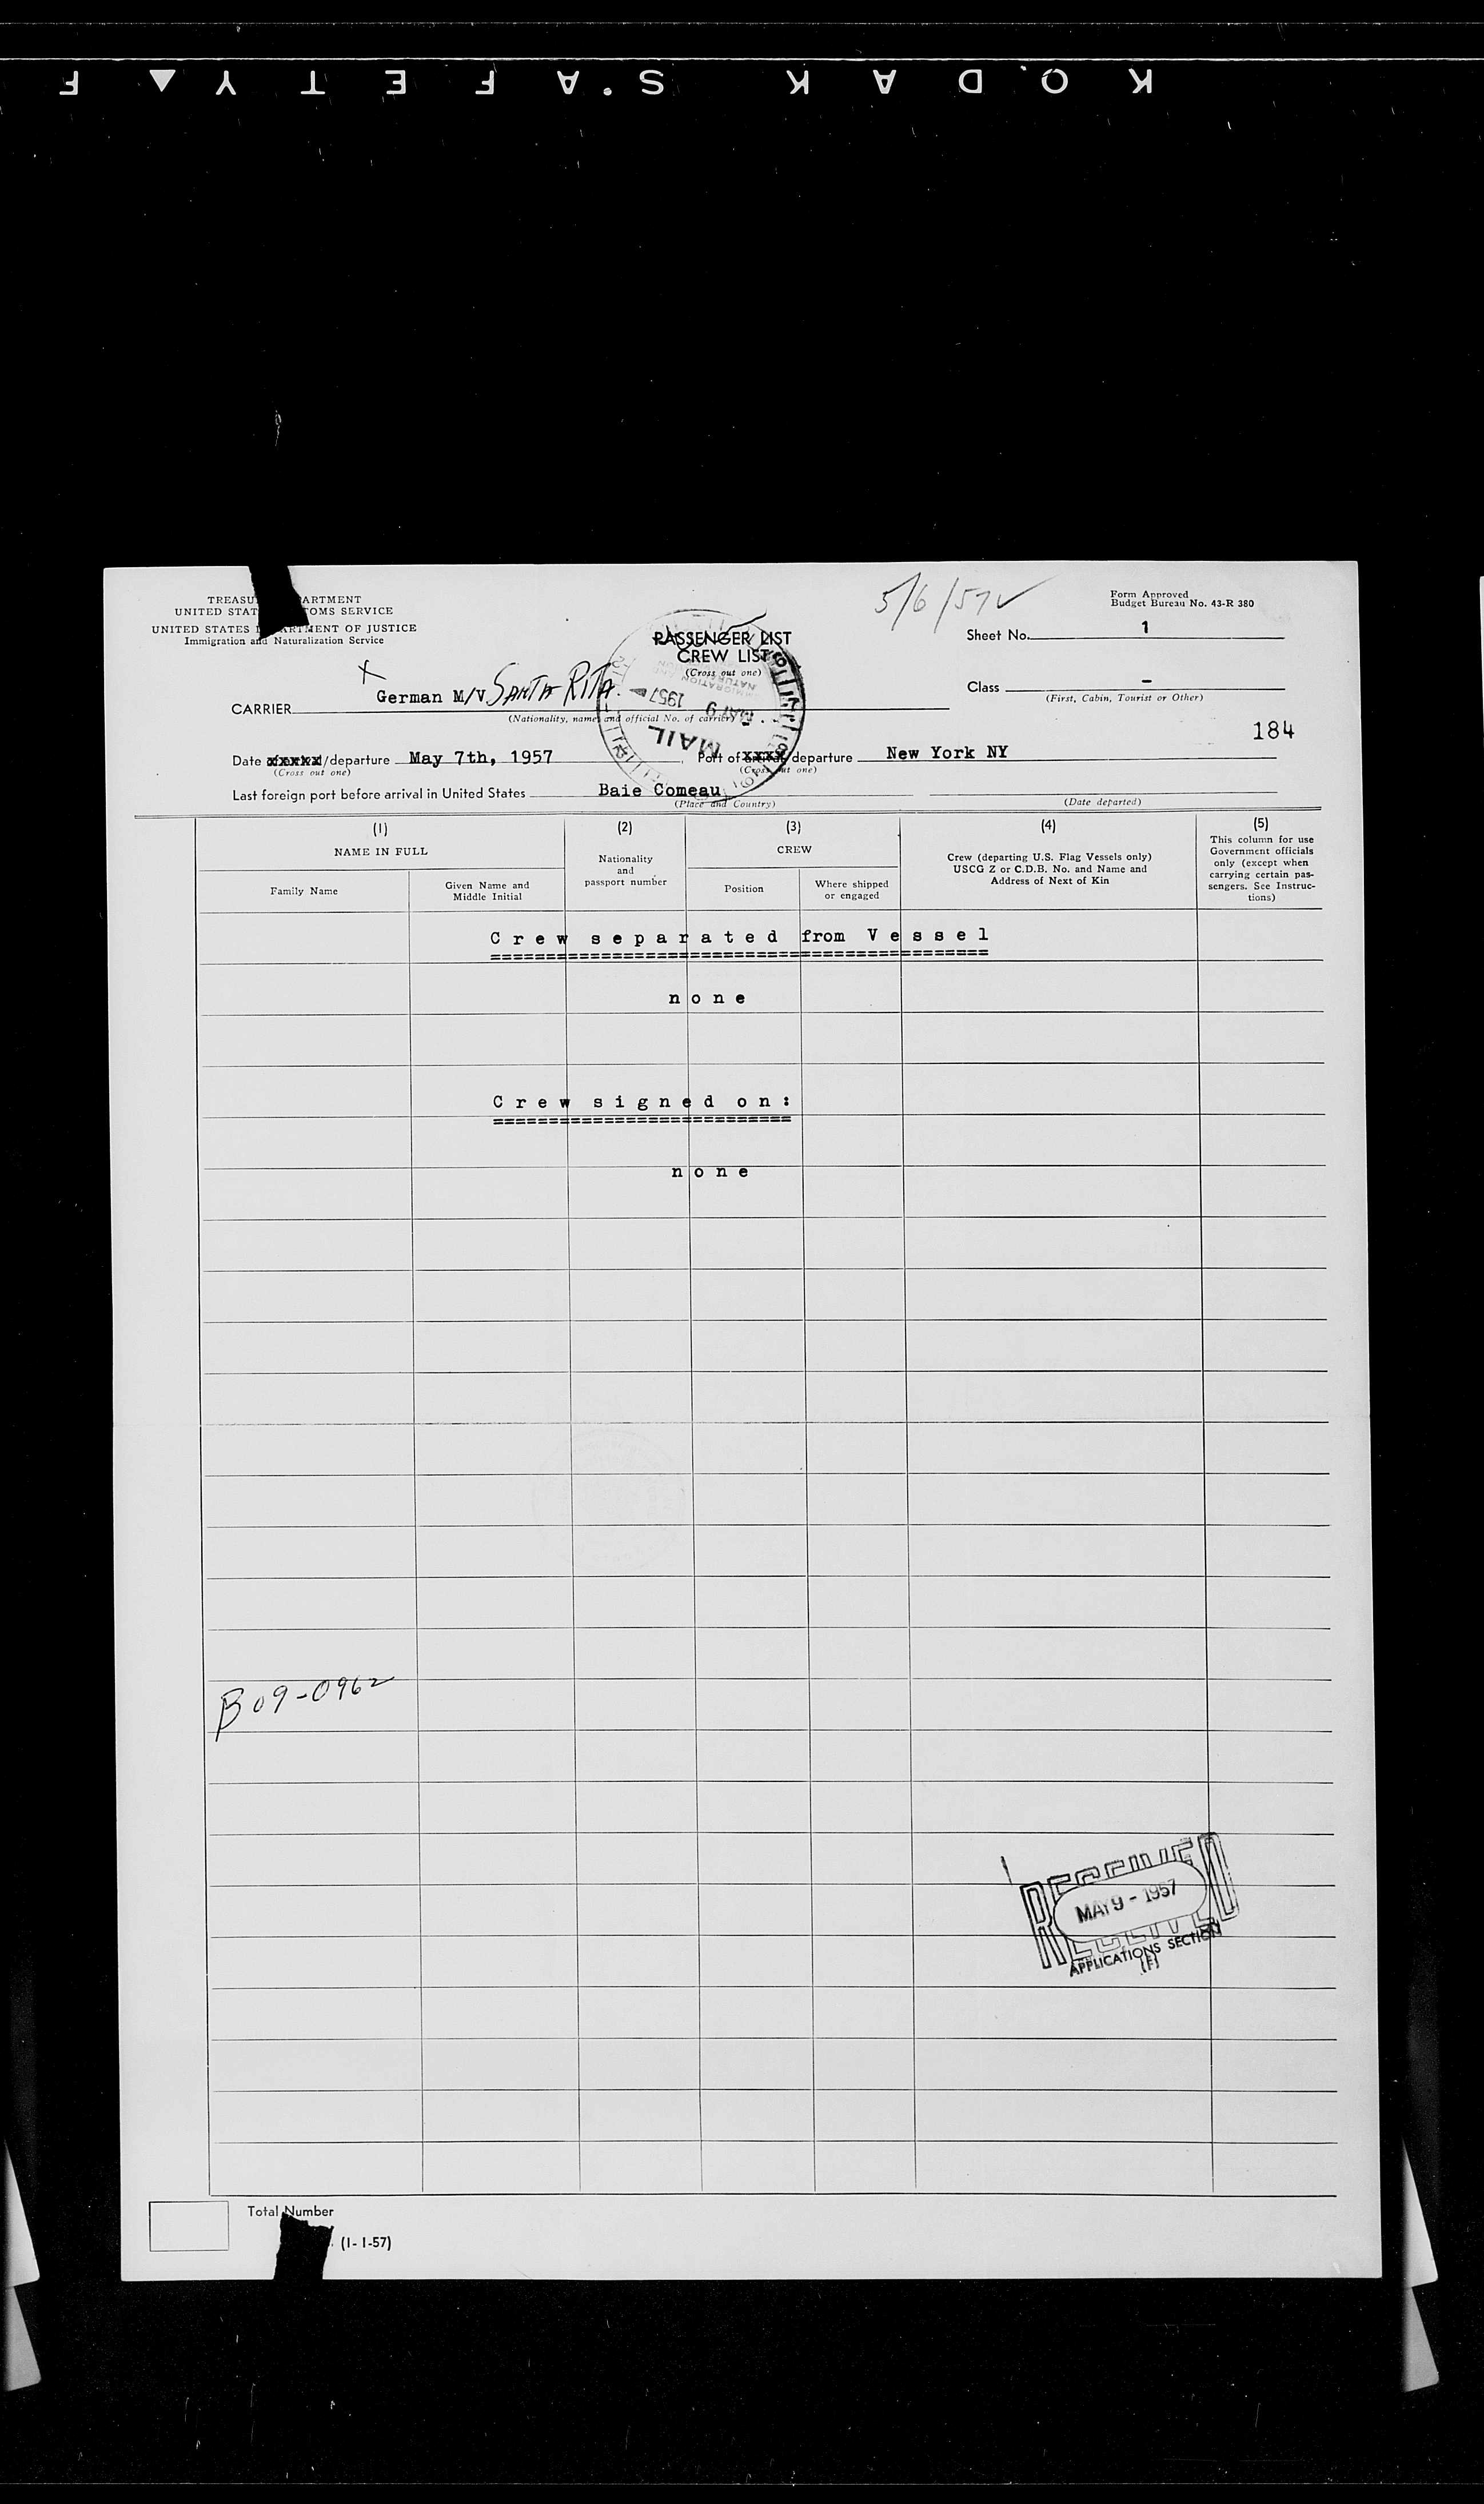 KODAK SAFETY F
TREASU ARTMENT
UNITED STAT TOMS SERVICE
UNITED STATES D ARTMENT OF JUSTICE
Immigration and Naturalization Service
5/6/57
Form Approved
Budget Bureau No. 43-R 380
PASSENGER LIST
CREW LIST
(Cross out one)
Sheet No. 1
X
CARRIER German M/V. SANTA RITA.
(Nationality, name, and official No. of carrier)
Class -
(First, Cabin, Tourist or Other)
MAY 9 1957
MAIL
184
Date xxxxx/departure May 7th, 1957 Port of xxxx/departure New York NY
(Cross out one) (Cross out one)
Last foreign port before arrival in United States Baie Comeau
(Place and Country) (Date departed)
(1) (2) (3) (4) (5)
NAME IN FULL
Family Name
Given Name and
Middle Initial
Nationality
and
passport number
CREW
Position
Where shipped
or engaged
Crew (departing U.S. Flag Vessels only)
USCG Z or C.D.B. No. and Name and
Address of Next of Kin
This column for use
Government officials
only (except when
carrying certain pas-
sengers. See Instruc-
tions)
Crew separated from Vessel
none
Crew signed on:
none
B09-0962
RECEIVED
MAY 9 - 1957
APPLICATIONS SECTION
(F)
Total Number
(1-1-57)